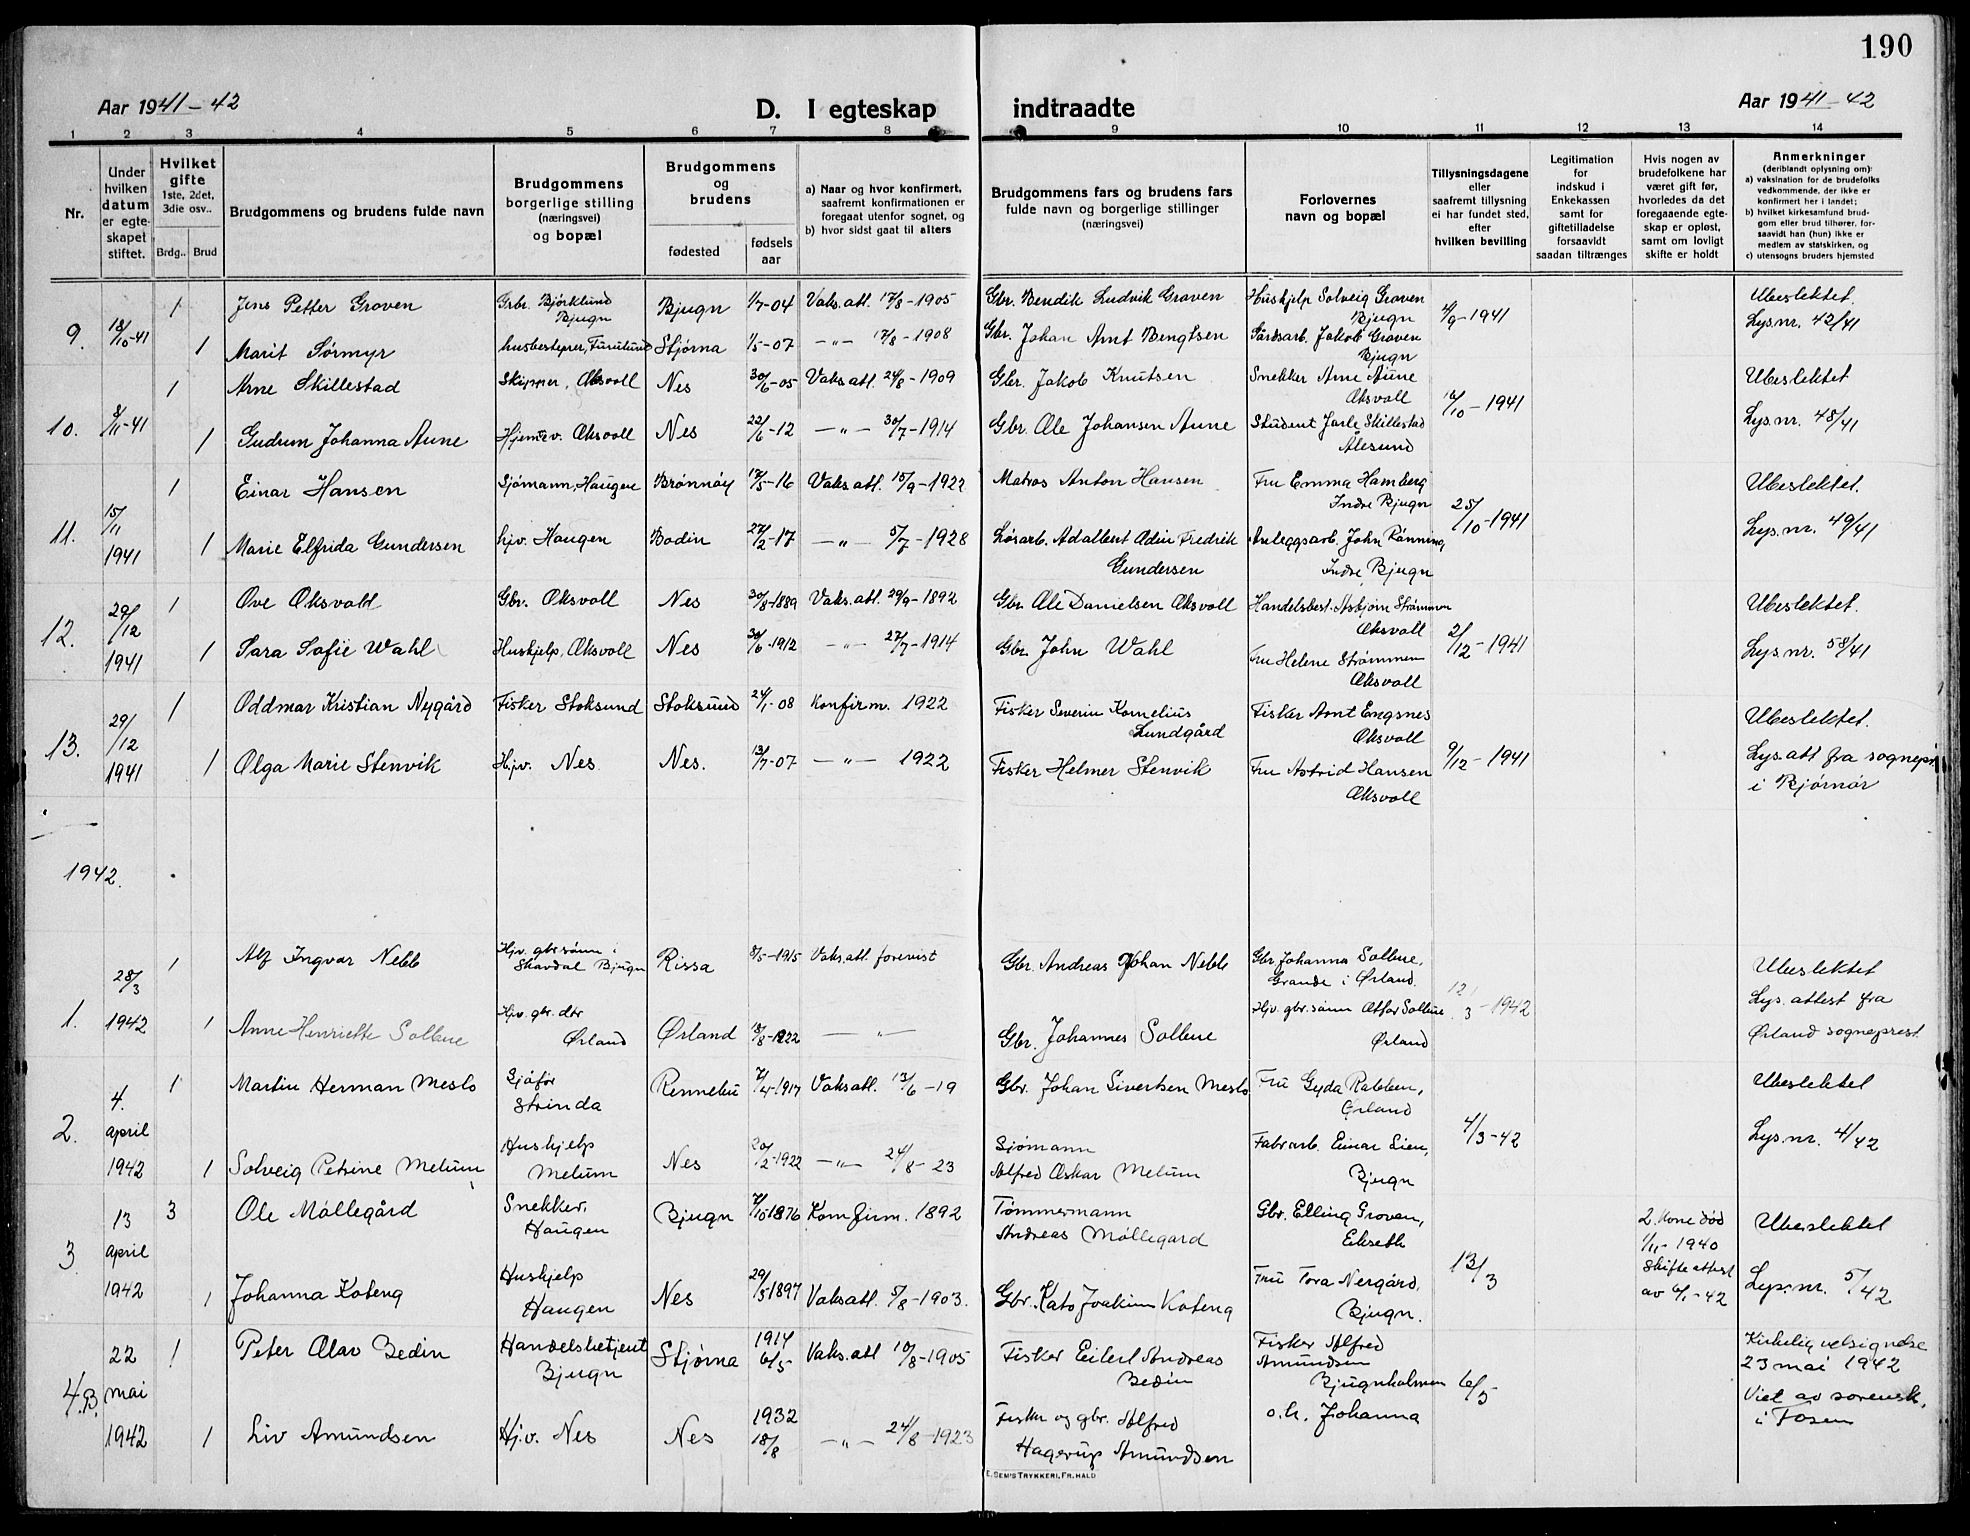 190
Aar 1941-42
D. I egteskap indtraadte
Aar 1941-42
1 2 3 4 5 6 7 8 9 10 11 12 13 14
Nr.
Under hvilken datum er egte-skapet stiftet.
Hvilket gifte
1ste, 2det, 3die osv..
Brdg.. Brud
Brudgommens og brudens fulde navn
Brudgommens borgerlige stilling (næringsvei) og bopæl
Brudgommens og brudens
fødested
fødsels aar
a) Naar og hvor konfirmert, saafremt konfirmationen er foregaat utenfor sognet, og
b) hvor sidst gaat til alters
Brudgommens fars og brudens fars fulde navn og borgerlige stillinger (næringsvei)
Forlovernes navn og bopæl
Tillysningsdagene eller saafremt tillysning ei har fundet sted, efter hvilken bevilling
Legitimation for indskud i Enkekassen samt for giftetilladelse forsaavidt saadan tiltrænges
Hvis nogen av brudefolkene har været gift før, hvorledes da det foregaaende egte-skap er opløst, samt om lovligt skifte er holdt
Anmerkninger
(deriblandt oplysning om):
a) vaksination for de brudefolks vedkommende, der ikke er konfirmert her i landet;
b) hvilket kirkesamfund brud-gom eller brud tilhører, for-saavidt han (hun) ikke er medlem av statskirken, og
c) utensogns bruders hjemsted
9. 18/10-41 1 Jens Petter Groven Grbr. Bjørklund Bjugn Bjugn 1/7-04 Vaks.att. 17/8-1905 Gbr. Bendik Ludvik Groven Huskjelp Solveig Groven Bjugn 4/9-1941 Ubeslektet. Lys.nr. 42/41
1 Marit Sørmyr husbestyrer, Furulund Stjørna 1/5-07 —"— 17/8-1908 Gbr. Johan Arnt Bengtsen Gårdsarb. Jakob Groven Bjugn
10. 8/11-41 1 Arne Skillestad Skipper, Oksvoll Nes 30/6-05 Vaks att. 24/8-1909 Gbr. Jakob Knutsen Snekker Arne Aune Oksvoll 16/10-1941 Ubeslektet Lys.nr. 48/41
1 Gudrun Johanna Aune Hjemmev. Oksvoll Nes 22/6-12 —"— 30/7-1914 Gbr. Ole Johansen Aune Student Jarle Skillestad Ålesund
11. 15/11 1941 1 Einar Hansen Sjømann, Haugen Brønnøy 17/5-16 Vaks att. 15/9-1922 Matros Anton Hansen Fru Emma Hamberg Indre Bjugn 25/10-1941 Ubeslektet. Lys.nr. 49/41
1 Marie Elfrida Gundersen hjv. Haugen Bodin 27/2-17 —"— 5/7-1928 Løsarb. Adalbert Odin Fredrik Gundersen Anleggsarb. John Rønning Indre Bjugn
12. 29/12 1941 1 Ove Oksvoll Gbr. Oksvoll Nes 30/8-1889 Vaks.att. 29/9-1892 Gbr. Ole Danielsen Oksvoll Handelsbest. Asbjørn Strømmen Oksvoll 2/12-1941 Ubeslektet. Lys nr. 58/41
1 Sara Sofie Wahl Huskjelp, Oksvoll Nes 30/6-1912 —"— 27/7-1914 Gbr John Wahl Fru Helene Strømmen Oksvoll
13. 29/12 1941 1 Oddmar Kristian Nygård Fisker Stoksund Stoksund 24/1-08 Konfirm. 1922 Fisker Severin Kornelius Lundgård Fisker Arnt Engsnes Oksvoll 9/12-1941 Ubeslektet. Lys.att fra sognepr. i Bjørnør
1 Olga Marie Stenvik Hjv. Nes Nes. 13/7-07 —"— 1922 Fisker Helmer Stenvik Fru Astrid Hansen Oksvoll
1942.
1. 28/3 1942 1 Alf Ingvar Nebb Hjv. gbr sønn i Skavdal Bjugn Rissa 8/5-1915 Vaks.att forevist Gbr. Andreas Johan Nebb Gbr Johannes Solbue, Grande i Ørland. 12/3-1942 Ubeslektet Lys. attest fra Ørland sogneprest
1 Anne Henriette Solbue Hjv. gbr. dtr Ørland Ørland 13/8-1922 —"— Gbr. Johannes Solbue Hjv. gbr. sønn Solbue Ørland
2. 4. april 1942 1 Martin Herman Meslo Sjåfør Strinda Rennebu 7/4-1917 Vaks att. 13/6-19 Gbr. Johan Sivertsen Meslo Fru Gyda Rabben, Ørland 4/3-42 Ubeslektet Lys.nr. 4/42
1 Solveig Petrine Melum Huskjelp Melum Nes 20/2-1922 —"— 24/8-23 Sjømann Alfred Oskar Melum Fabr arb. Einar Lien, Bjugn
3 13 april 1942 3 Ole Møllegård Snekker, Haugen Bjugn 7/10 1876 Konfirm. 1892 Tømmermann Andreas Møllegård Gbr. Elling Groven, Eikseth 13/3 2. Kone død 1/11-1940 Skifte attest av 6/1-42 Ubeslektet Lys.nr. 5/42
1 Johanna Koteng Huskjelp Haugen Nes 29/5 1897 Vaks att. 5/8-1903. Gbr. Kato Joakim Koteng Fru Tora Nergård, Bjugn.
4.B. 22 mai 1942 1 Peter Olav Bedin Handelsbetjent Bjugn Stjørna 1914 6/5 Vaks.att 10/8-1905 Fisker Eilert Andreas Bedin Fisker Alfred Amundsen Bjugnholmen 6/5 Kirkelig velsignelse 23 mai 1942 Viet av sorensk. i Fosen
1 Liv Amundsen Hj.v. Nes Nes 1932 18/8 —"— 24/8-1923 Fisker og gbr. Alfred Hagerup Amundsen o.h. Johanna
E. SEM'S TRYKKERI, FR. HALD